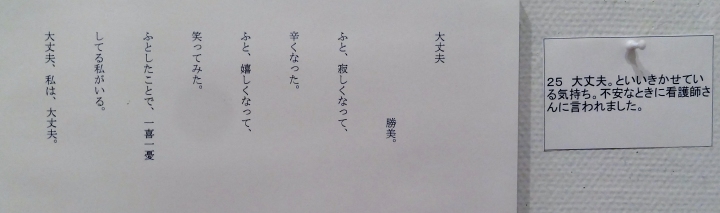 大丈夫
勝美。
ふと、寂しくなって、
辛くなった。
ふと、嬉しくなって、
笑ってみた。
ふとしたことで、一喜一憂
してる私がいる。
大丈夫、私は、大丈夫。
25　大丈夫。といいきかせてい
る気持ち。不安なときに看護師さ
んに言われました。